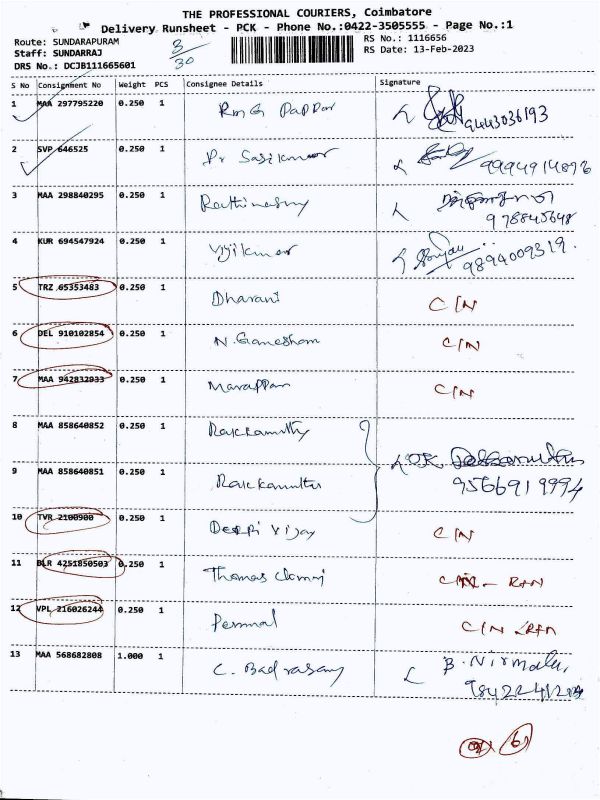 THE PROFESSIONAL COURIERS, Coimbatore
Delivery Runsheet - PCK - Phone No.:0422-3505555 - Page No.:1
Route: SUNDARAPURAM 3/30 RS No.: 1116656
Staff: SUNDARRAJ RS Date: 13-Feb-2023
DRS No.: DCJB111665601
S No Consignment No Weight PCS Consignee Details Signature
1 MAA 297795220 0.250 1 9443036193
2 SVP 646525 0.250 1 Pr Sasikumar
3 MAA 298840295 0.250 1
4 KUR 694547924 0.250 1 Vijikumar 9894009319.
5 TRZ 65353483 0.250 1 Dharani C/N
6 DEL 910102854 0.250 1 N. Ganesham C/N
7 MAA 942832933 0.250 1 Marappan C/N
8 MAA 858640852 0.250 1
9 MAA 858640851 0.250 1 9566919994
10 TVR 2100900 0.250 1 Deepi Vijay C/N
11 BLR 4251850503 0.250 1 Thomas
12 VPL 216026244 0.250 1 Perumal C/N
13 MAA 568682808 1.000 1 C. Badrasamy B. Nirmala,